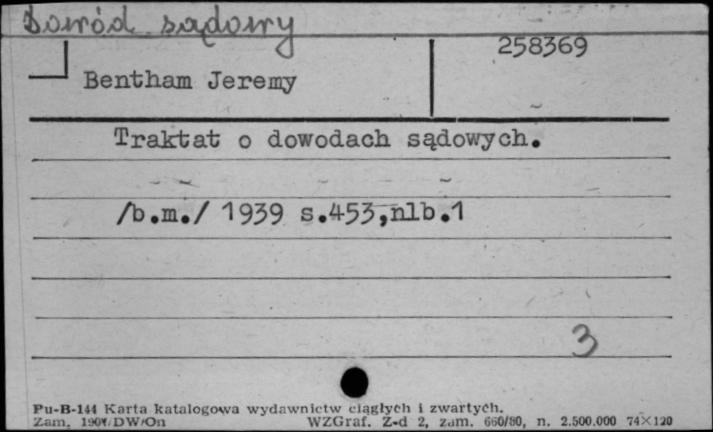 Dowód sądowy
258369
Bentham Jeremy
Traktat o dowodach sądowych.
/b.m./ 1939 s.453,nlb.1
3
Pu-B-144 Karta katalogowa wydawnictw ciągłych i zwartych.
Zam. DW/On WZGraf. Z-d 2, zam. 660/80, n. 2.500.000 74×120